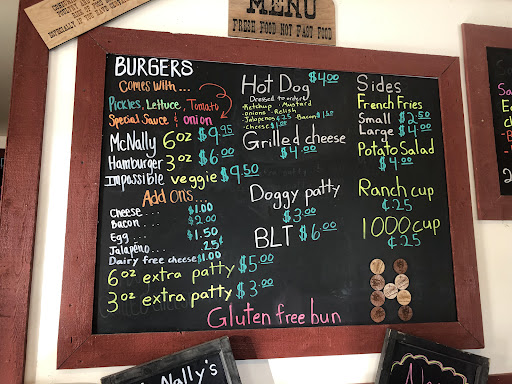 MENU
FRESH FOOD NOT FAST FOOD
BURGERS
Comes With ...
Pickles, Lettuce, Tomato
Special Sauce & onion
McNally 6oz $9.95
Hamburger 3oz $6.00
Impossible veggie $9.50
Add Ons...
Cheese ... $1.00
Bacon ... $2.00
Egg ... $1.50
Jalapeño ... 25¢
Dairy free cheese $1.00
6oz extra patty $5.00
3oz extra patty $3.00
Hot Dog $4.00
Dressed to order
Ketchup · Mustard
·onions · Relish
·Jalapenos ¢25 ·Bacon $1.50
·Cheese $1.00
Grilled cheese
$4.00
Doggy patty
$3.00
BLT $6.00
Sides
French Fries
Small $2.50
Large $4.00
Potato Salad
$4.00
Ranch cup
¢.25
1000 cup
¢25
Gluten free bun
Nally's